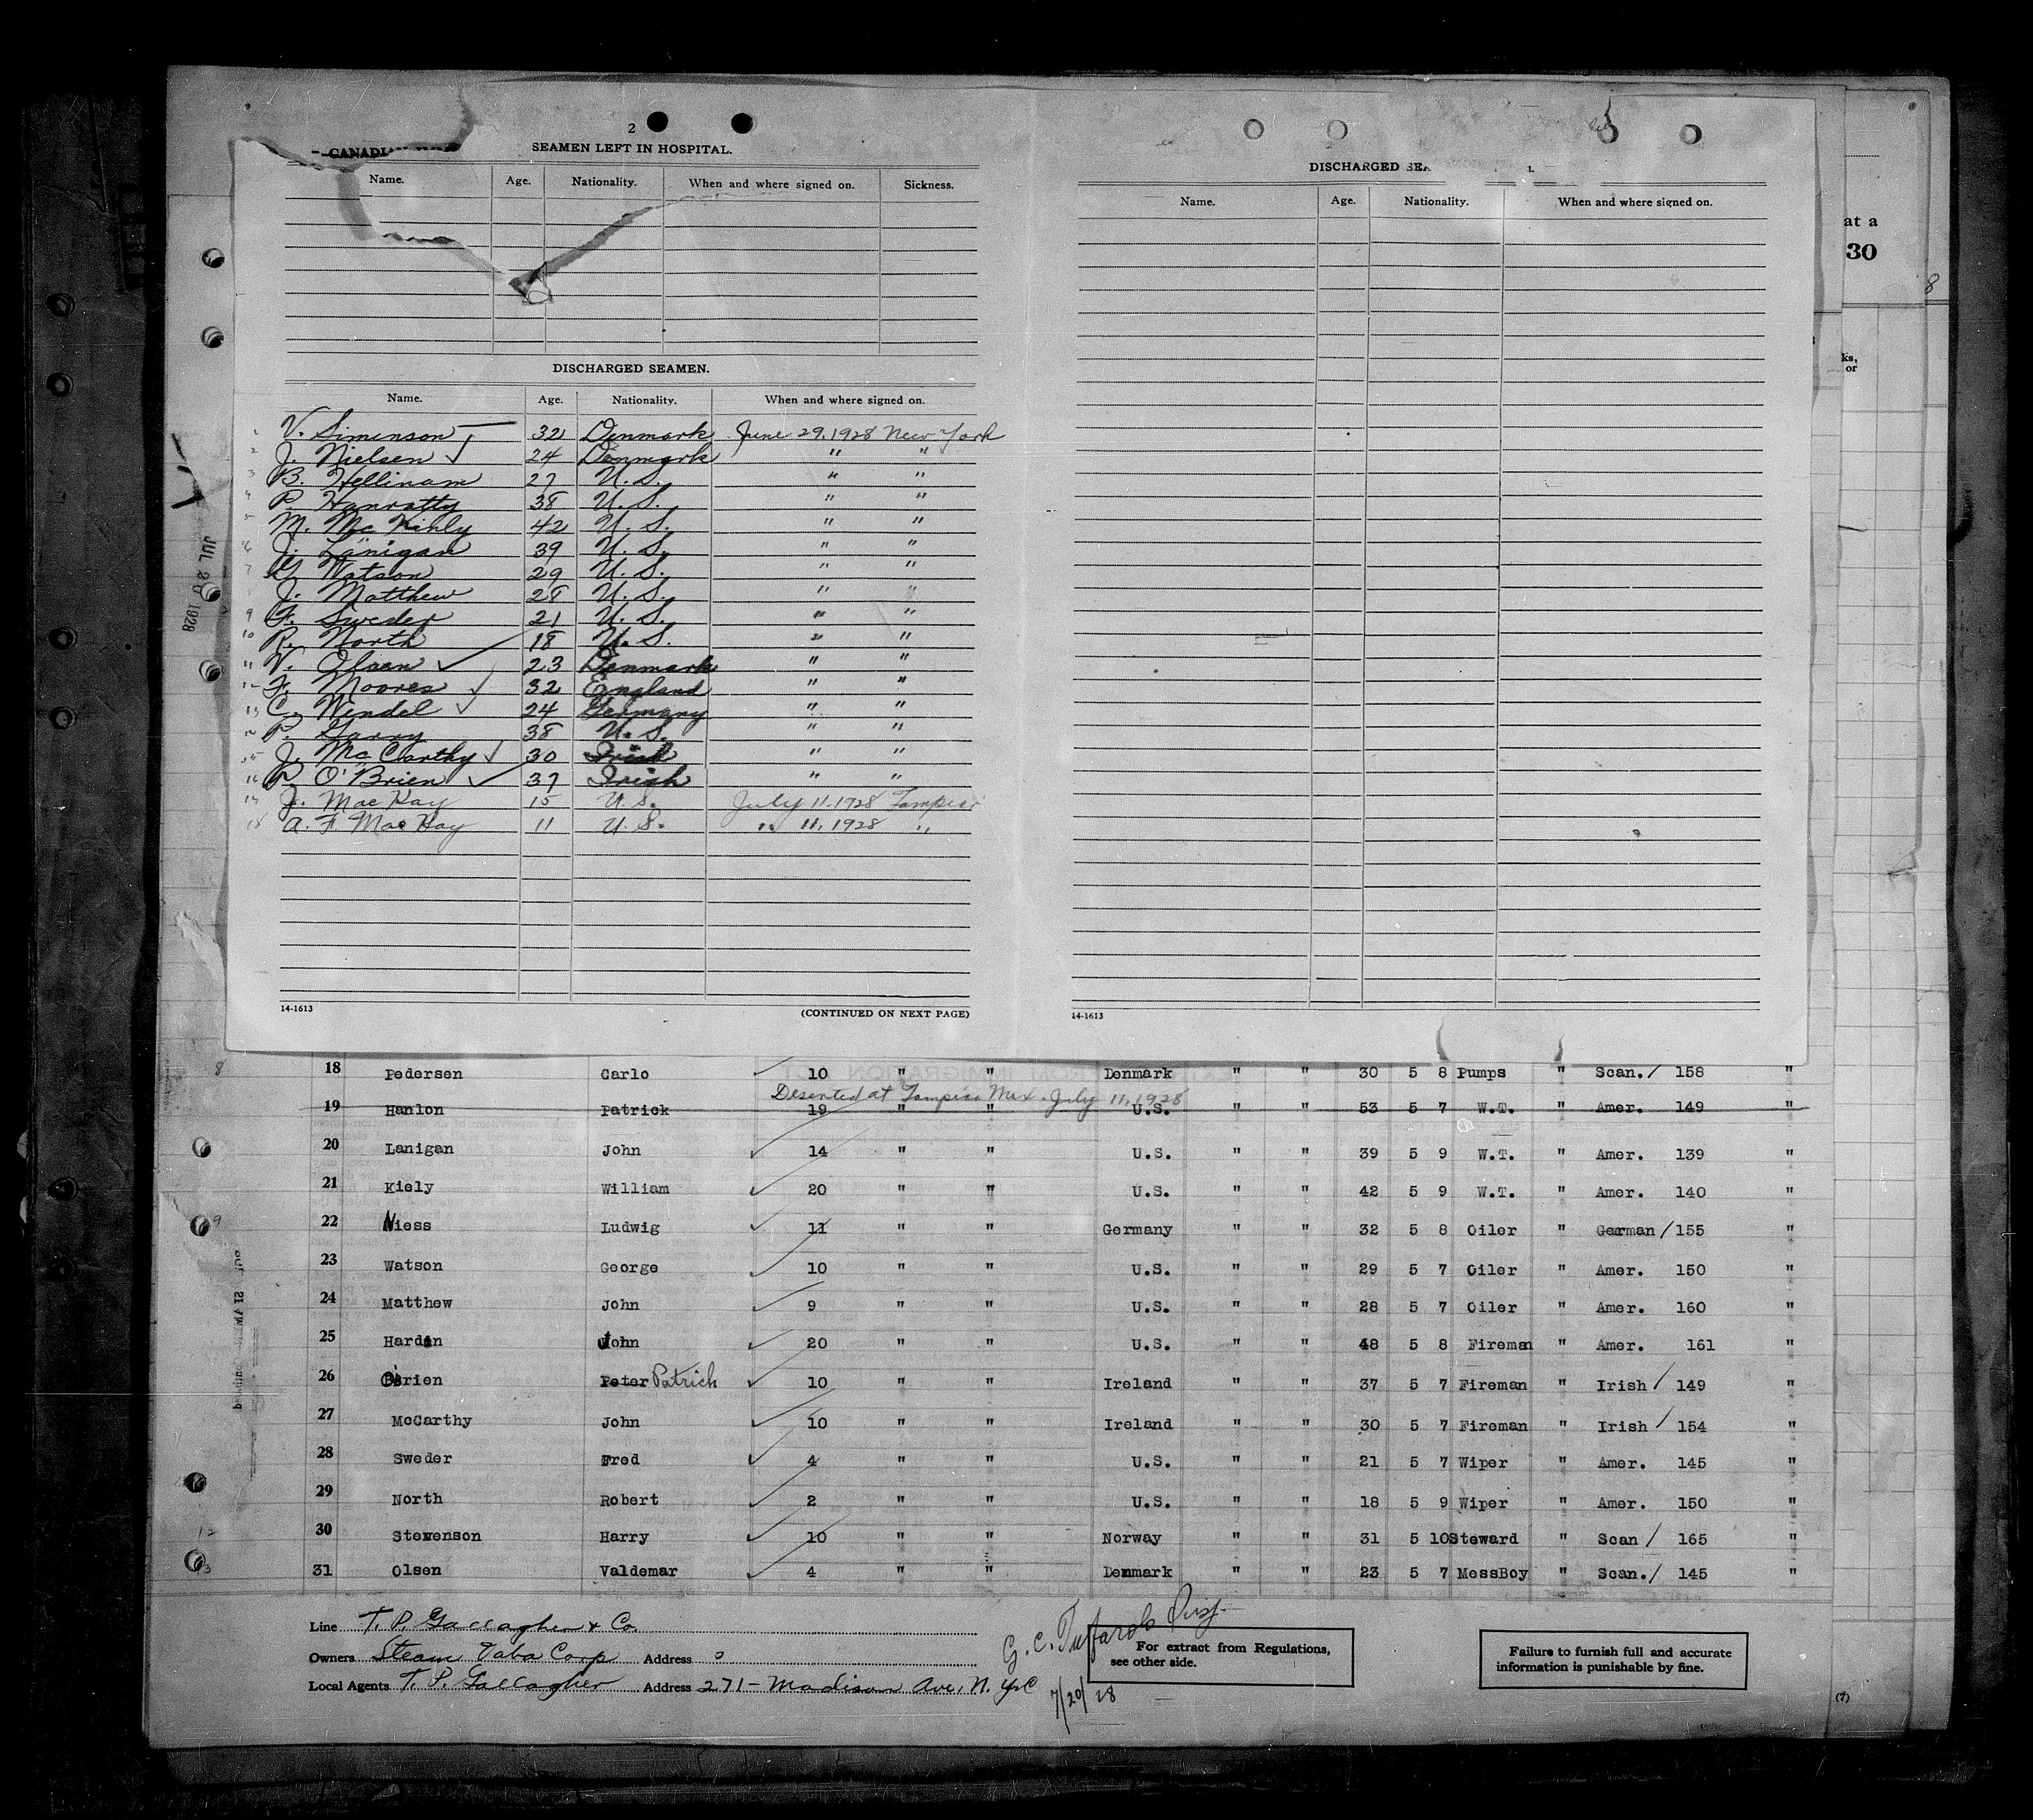 2
CANADIAN
SEAMEN LEFT IN HOSPITAL.
Name. Age. Nationality. When and where signed on. Sickness.
DISCHARGED SEAMEN.
Name. Age. Nationality. When and where signed on.
1 V. Simenson 32 Denmark June 29, 1928 New York
2 J. Nielsen ✓ 24 Denmark " "
3 B. Hellinam 27 U.S. " "
4 P. Hanratty 38 U.S. " "
5 M. McKinly 42 U.S. " "
6 J. Lanigan 39 U.S. " "
7 G. Watson 29 U.S. " "
8 J. Matthew 28 U.S. " "
9 F. Sweder 21 U.S. " "
10 R. North 18 U.S. " "
11 V. Olsen ✓ 23 Denmark " "
12 F. Moores ✓ 32 England " "
13 C. Wendel ✓ 24 Germany " "
14 P. Garry 38 U.S. " "
15 J. McCarthy ✓ 30 Irish " "
16 P. O'Brien ✓ 37 Irish " "
17 J. MacKay 15 U.S. July 11-1928 Tampico
18 A. F. MacKay 11 U.S. " 11, 1928 "
14-1613 (CONTINUED ON NEXT PAGE)
DISCHARGED SEA
Name. Age. Nationality. When and where signed on.
14-1613
at a
30
8
ks,
or
JUL 20 1928
18 Pedersen Carlo ✓ 10 " " Denmark " " 30 5 8 Pumps " Scan. / 158 "
Deserted at Tampico Mex. July 11, 1928
19 Hanlon Patrick 19 " " U.S. " " 53 5 7 W.T. " Amer. 149 "
20 Lanigan John ✓ 14 " " U.S. " " 39 5 9 W.T. " Amer. 139 "
21 Kiely William ✓ 20 " " U.S. " " 42 5 9 W.T. " Amer. 140 "
22 Niess Ludwig ✓ 11 " " Germany " " 32 5 8 Oiler " German / 155 "
23 Watson George ✓ 10 " " U.S. " " 29 5 7 Oiler " Amer. 150 "
24 Matthew John ✓ 9 " " U.S. " " 28 5 7 Oiler " Amer. 160 "
25 Hardin John ✓ 20 " " U.S. " " 48 5 8 Fireman " Amer. 161 "
26 O'Brien Peter Patrick ✓ 10 " " Ireland " " 37 5 7 Fireman " Irish / 149 "
27 McCarthy John ✓ 10 " " Ireland " " 30 5 7 Fireman " Irish / 154 "
28 Sweder Fred ✓ 4 " " U.S. " " 21 5 7 Wiper " Amer. 145 "
29 North Robert ✓ 2 " " U.S. " " 18 5 9 Wiper " Amer. 150 "
30 Stevenson Harry ✓ 10 " " Norway " " 31 5 10 Steward " Scan / 165 "
31 Olsen Valdemar ✓ 4 " " Denmark " " 23 5 7 MessBoy " Scan. / 145 "
Line T. P. Gallagher & Co.
Owners Steam Vaba Corp Address
Local Agents T. P. Gallagher Address 271 - Madison Ave, N.Y.C
G. C.
7/20/28
For extract from Regulations,
see other side.
Failure to furnish full and accurate
information is punishable by fine.
(7)